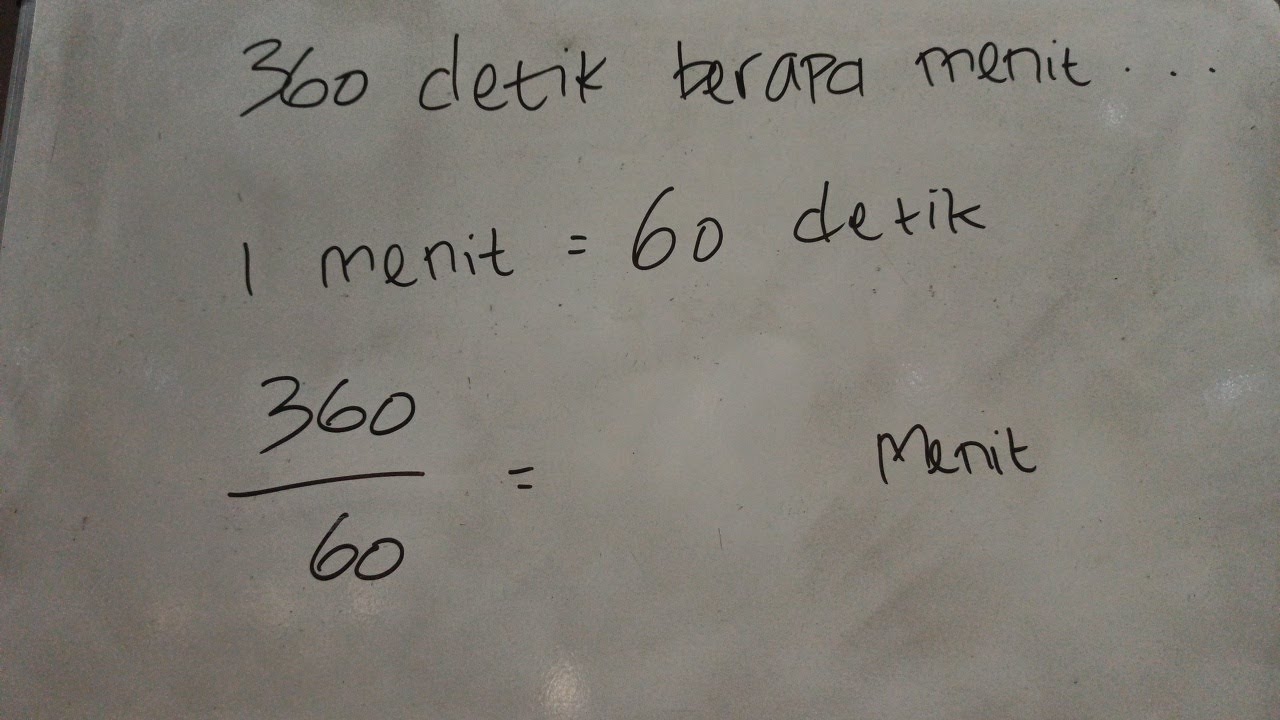 360 detik berapa menit ...
1 menit = 60 detik
360
60
= Menit